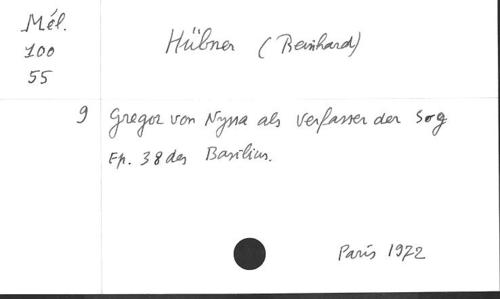 Mél.
100
55
Hübner (Reinhard)
9 Gregor von Nyssa als Verfasser der sog
Ep. 38 des Basilius.
Paris 1972